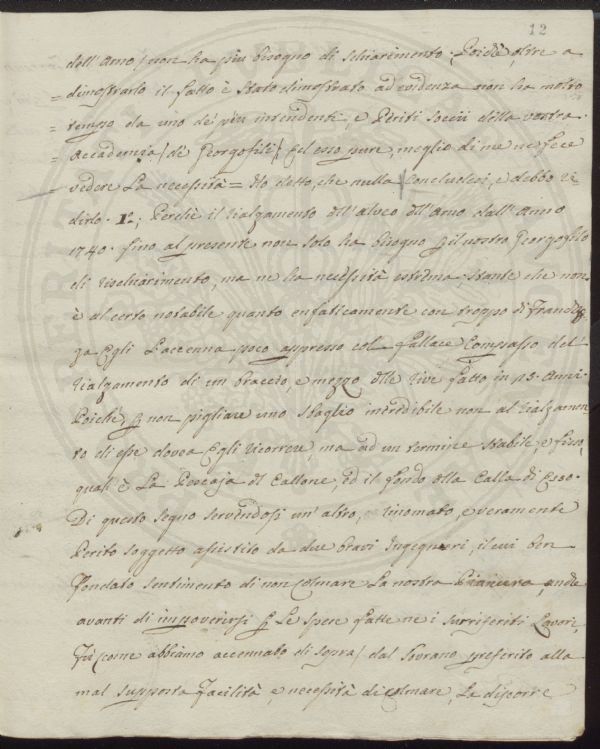 12
dell'Arno / non ha più bisogno di schiarimento. Poichè, oltre a
= dimostrarlo il fatto è stato dimostrato ad evidenza non ha molto
= tempo da uno de' più intendenti, e Periti Socii della vostra
= Accademia / de' Georgofili /, ed esso pure, meglio di me ne fece
= vedere La necessità = Ho detto, che nulla Concludesi, e debbo ri
dirlo. 1.º; Perchè il rialzamento dll'alveo dll'Arno dall'Anno
1740. fino al presente non solo ha bisogno pel nostro Georgofilo
di rischiarimento, ma ne ha necessità estrema, stante che non
è al certo notabile quanto enfaticamente con troppo di Franchez
za Egli L'accenna, poco appresso col fallace Compasso del
rialzamento di un braccio, e mezzo dlle rive fatto in 13. Anni.
Poichè, p non pigliare uno sbaglio incredibile non al rialzamen
to di esse dovea Egli ricorrere, ma ad un termine stabile, e fisso,
qual è La Pescaja dl Callone, ed il fondo dlla Calla di
Di questo segno servendosi un' altro, rinomato, e veramente
Perito soggetto assistito da due bravi Ingegneri, il cui ben
fondato sentimento di non Colmare La nostra Pianura, anche
avanti di impoverirsi p Le spese fatte ne i surriferiti Lavori,
fù (come abbiamo accennato di sopra) dal Sovrano preferito alla
mal supposta facilità, e necessità di colmare, La discorre